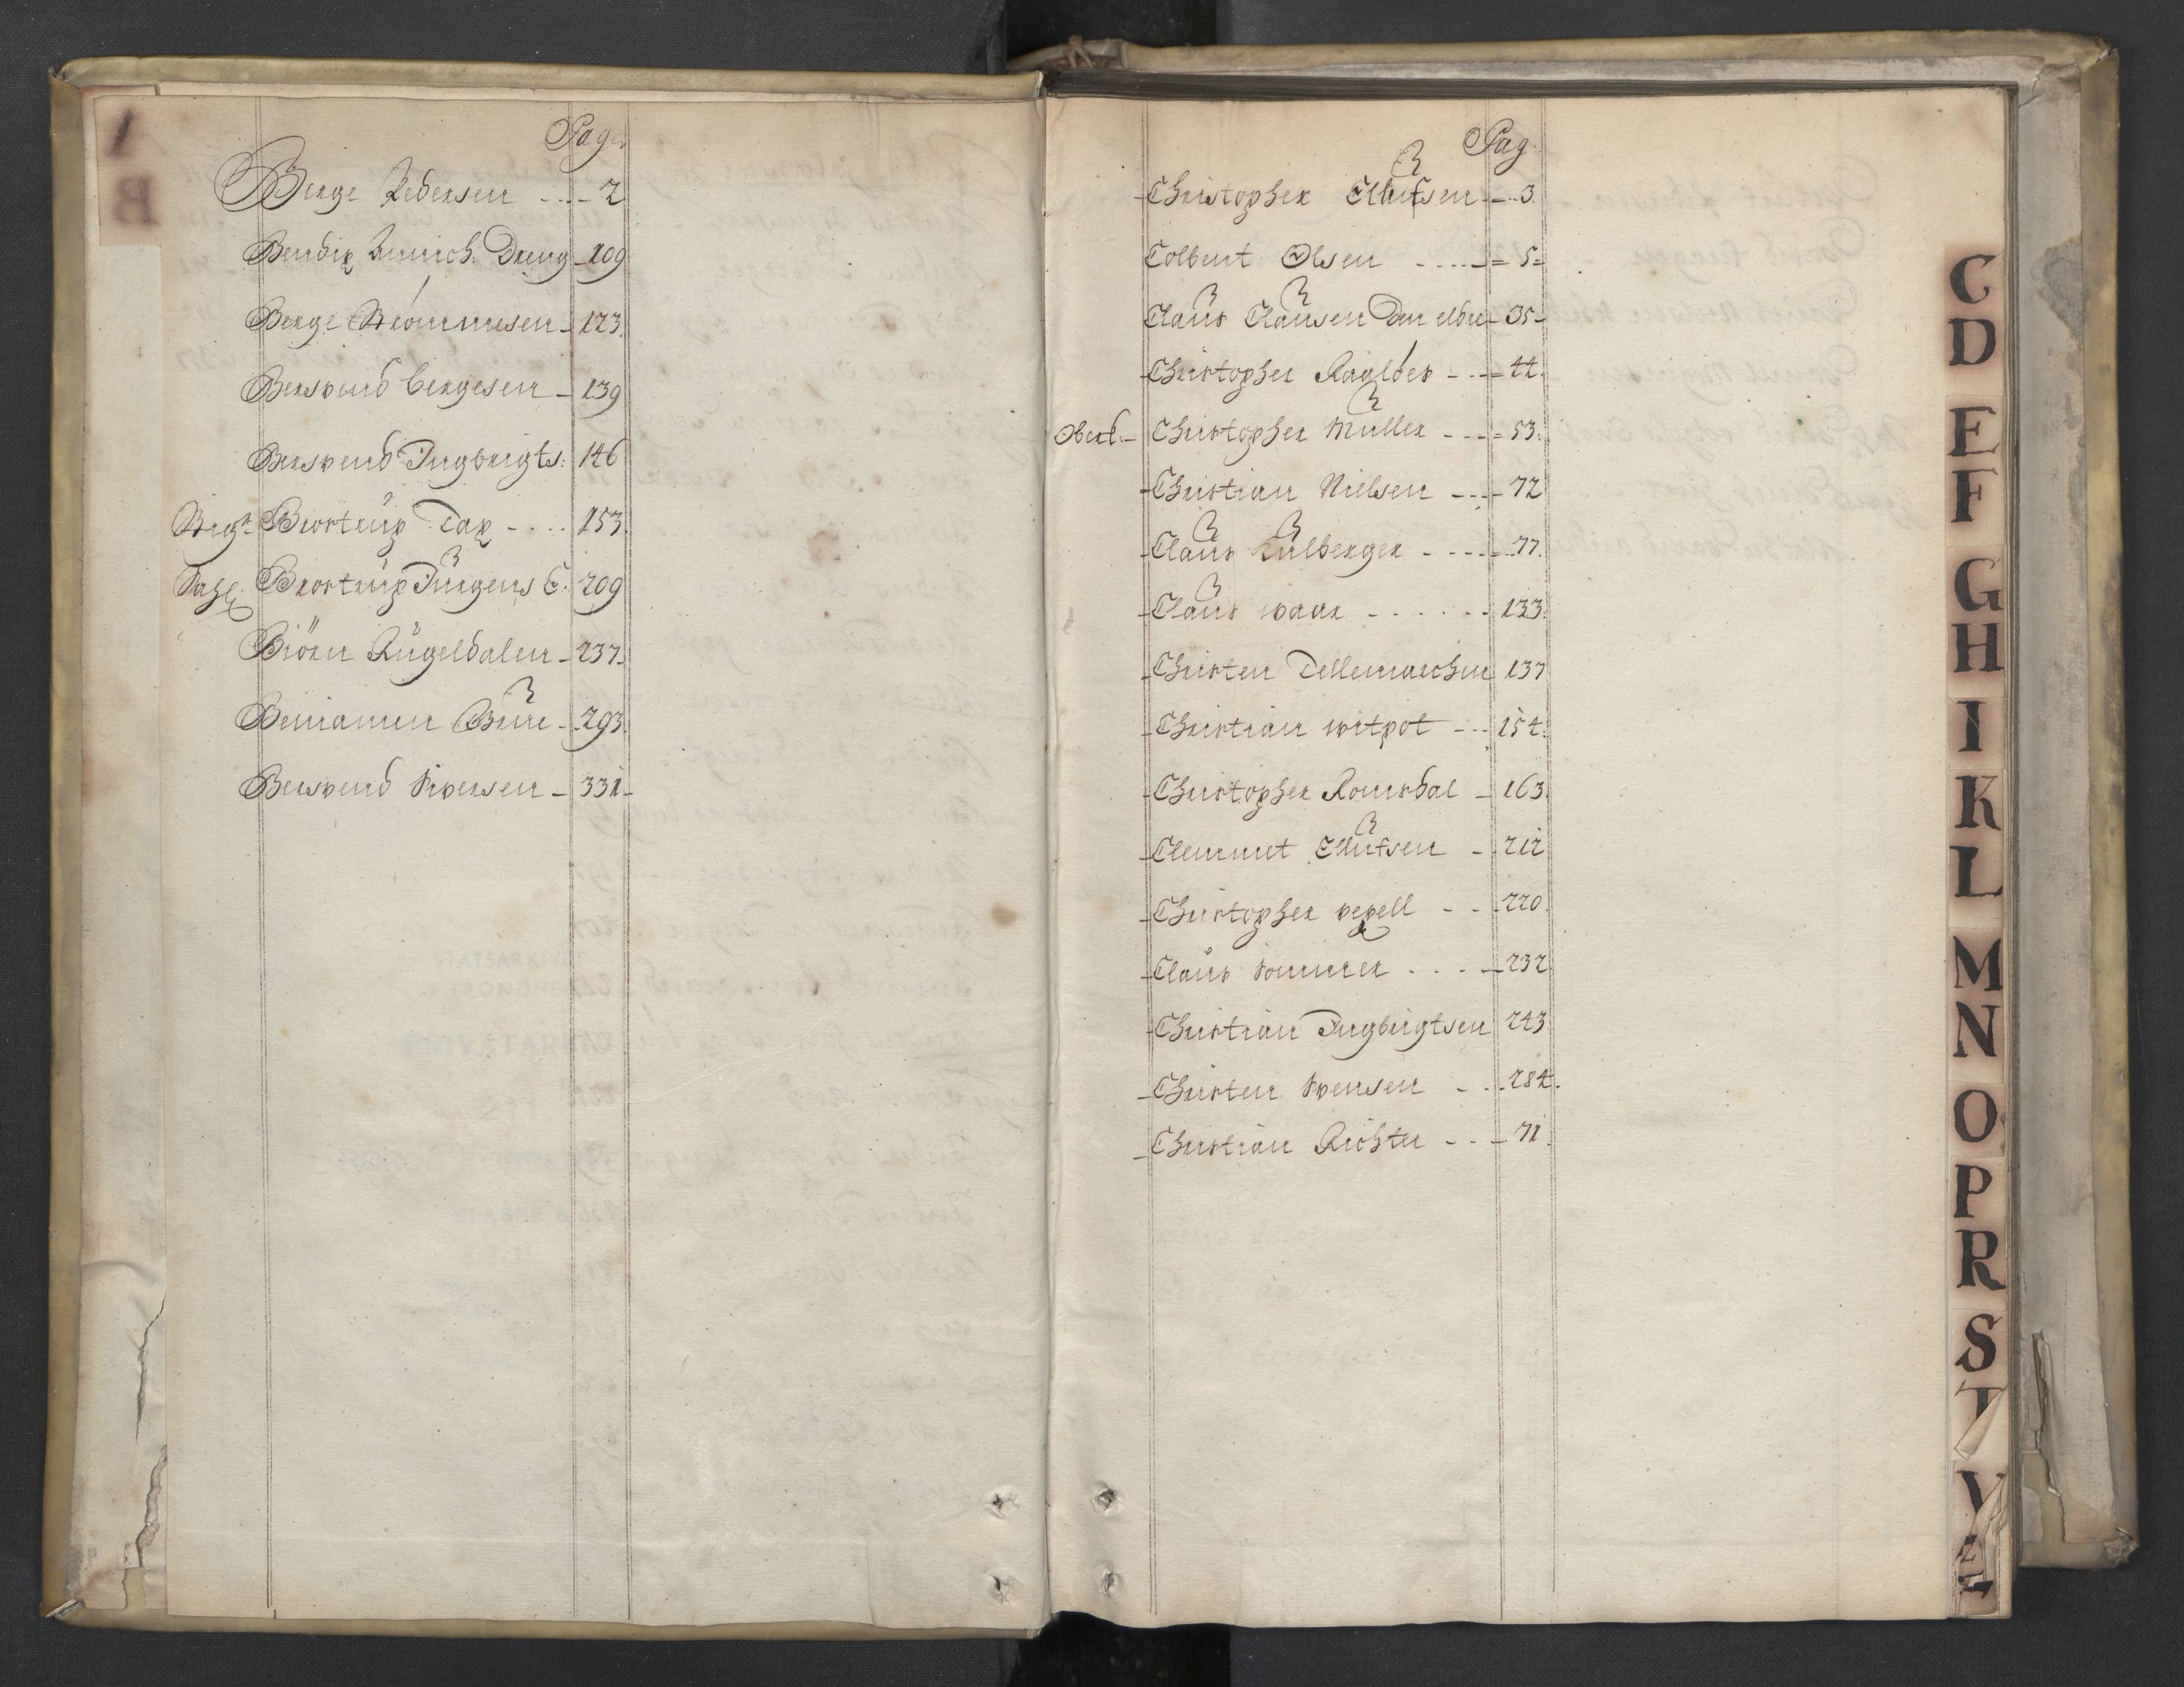 Pag.
Berge Pedersen - - - - 2
Bendix Hinrich. Dreng - 109
Berge Brommesen - 123.
Berswend bergesen - 139
Berswend Ingbrigts: 146
Bigt. Biortrüp Dax - - - . 153.
Sahl. Brortrüp Jürgens C. 209
Biörn Rügeldalen - 237.
Beniamin Büre - 293.
Berswend Siversen - 331 -
Pag.
Christopher Ellufsen - - - 3.
Colbent Olsen - - - - = 5 =
Claus Clausen Den eldre - 35 -
Christopher Rogldes - - - = 44.
Oberb. - Christopher Muller - - - = 53.
Christian Nielsen - - - - 72
Claus Külberger - - - - = 77.
Claus waar - - - - - - - 133.
Christen Dellemarchen 137
Christian witpot - - - 154.
Christopher Romsdal - 163.
Clemmet Ellufsen - - 212
Christopher pexell - - - 220.
Claus Sommer . . . - 232
Christian Ingbrigtsen 243.
Christen Svensen - . . 284.
Christian Richter - - - 71.
C
D
E
F
G
H
I
K
L
M
N
O
P
R
S
T
V